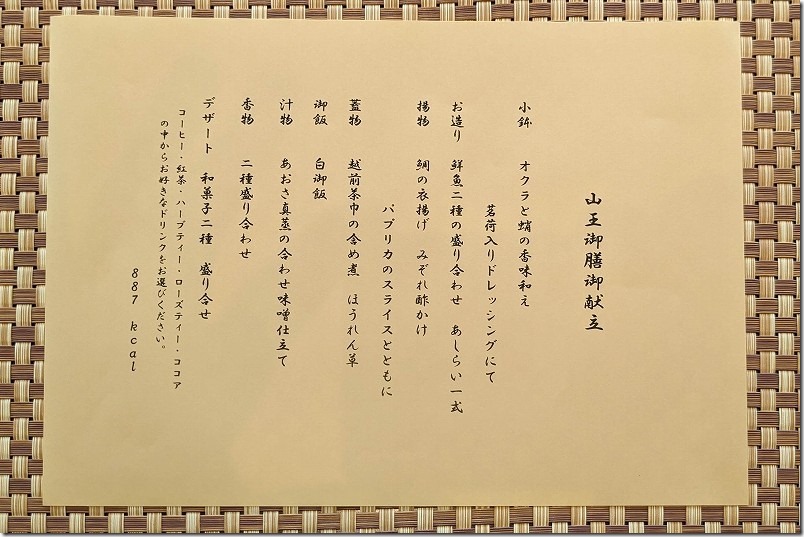 山王御膳御献立
小鉢　オクラと蛸の香味和え
茗荷入りドレッシングにて
お造り　鮮魚二種の盛り合わせ　あしらい一式
揚物　鯛の衣揚げ　みぞれ酢かけ
パプリカのスライスとともに
蓋物　越前茶巾の含め煮　ほうれん草
御飯　白御飯
汁物　あおさ真蒸の合わせ味噌仕立て
香物　二種盛り合わせ
デザート　和菓子二種　盛り合せ
コーヒー・紅茶・ハーブティー・ローズティー・ココア
の中からお好きなドリンクをお選びください。
887 kcal